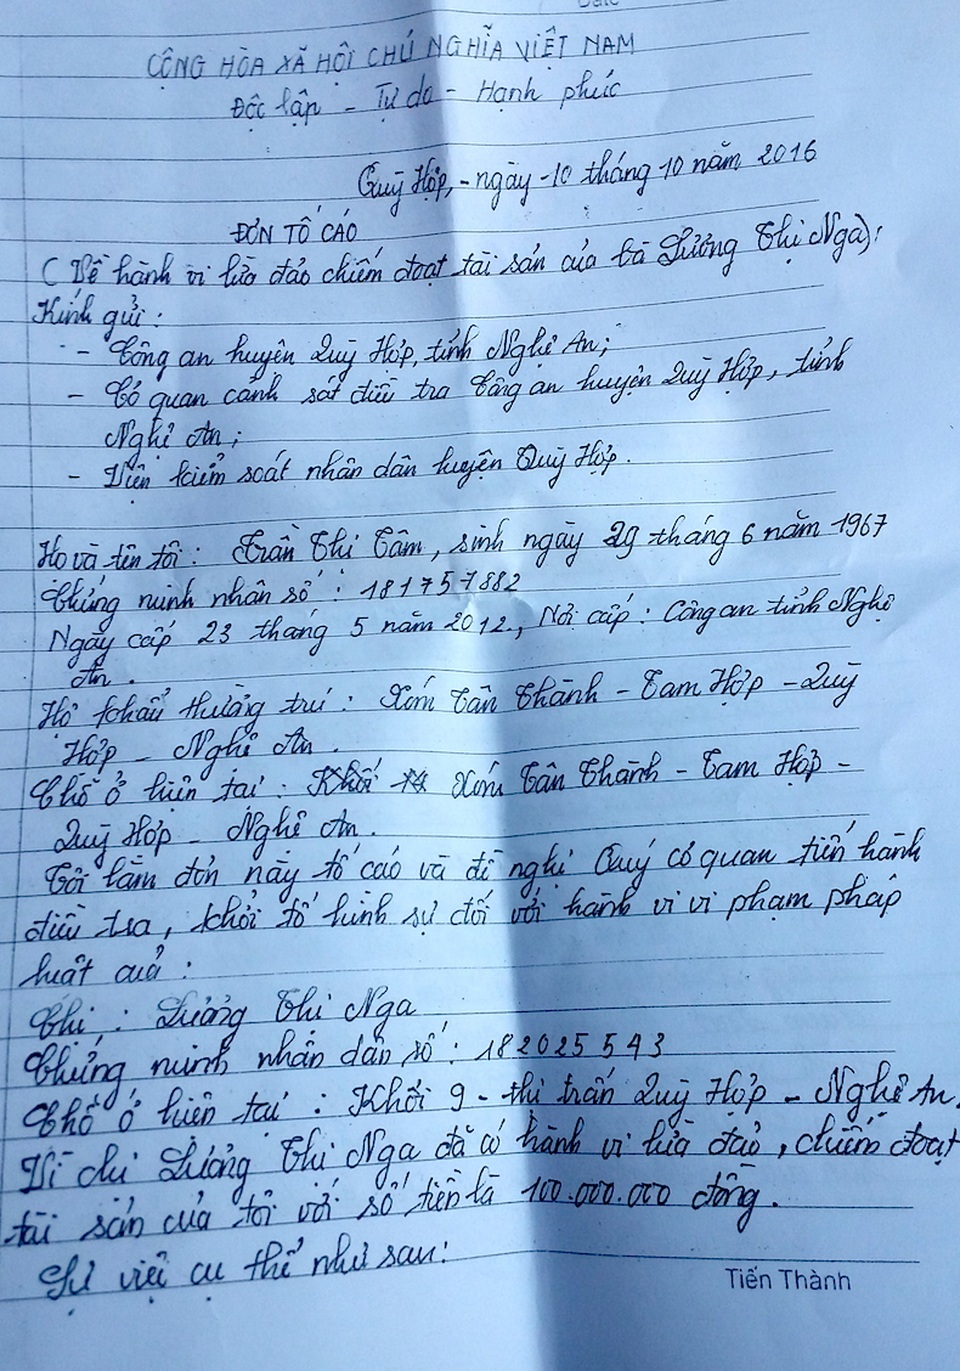 CỘNG HÒA XÃ HỘI CHỦ NGHĨA VIỆT NAM
Độc lập - Tự do - Hạnh phúc
Quỳ Hợp, - ngày - 10 tháng 10 năm 2016
ĐƠN TỐ CÁO
( Về hành vi lừa đảo chiếm đoạt tài sản của bà Lương Thị Nga);
Kính gửi:
- Công an huyện Quỳ Hợp, tỉnh Nghệ An;
- Cơ quan cảnh sát điều tra Công an huyện Quỳ Hợp, tỉnh
Nghệ An;
- Viện kiểm soát nhân dân huyện Quỳ Hợp.
Họ và tên tôi: Trần Thị Tâm, sinh ngày 29 tháng 6 năm 1967
Chứng minh nhân số: 181757882
Ngày cấp 23 tháng 5 năm 2012., Nơi cấp: Công an tỉnh Nghệ
An.
Hộ khẩu thường trú: Xóm Tân Thành - Tam Hợp - Quỳ
Hợp - Nghệ An.
Chỗ ở hiện tại: Khối Xóm Tân Thành - Tam Hợp -
Quỳ Hợp - Nghệ An.
Tôi làm đơn này tố cáo và đề nghị Quý cơ quan tiến hành
điều tra, khởi tố hình sự đối với hành vi vi phạm pháp
luật củả:
Chị: Lương Thị Nga
Chứng minh nhân dân số: 182025543
Chỗ ở hiện tại: Khối 9 - thị trấn Quỳ Hợp - Nghệ An.
Vì chị Lương Thị Nga đã có hành vi lừa đảo, chiếm đoạt
tài sản của tôi với số tiền là 100.000.000 đồng.
Sự việc cụ thể như sau:
Tiến Thành